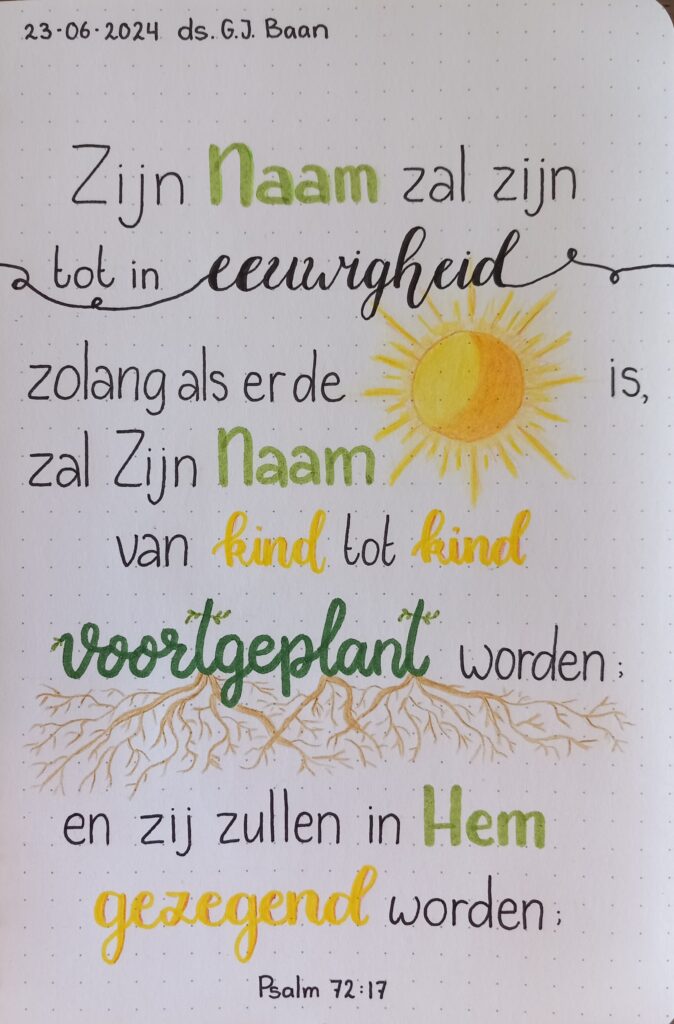 23-06-2024 ds. G.J. Baan
Zijn Naam zal zijn
tot in eeuwigheid
zolang als er de is,
zal Zijn Naam
van kind tot kind
voortgeplant worden;
en zij zullen in Hem
gezegend worden;
Psalm 72:17